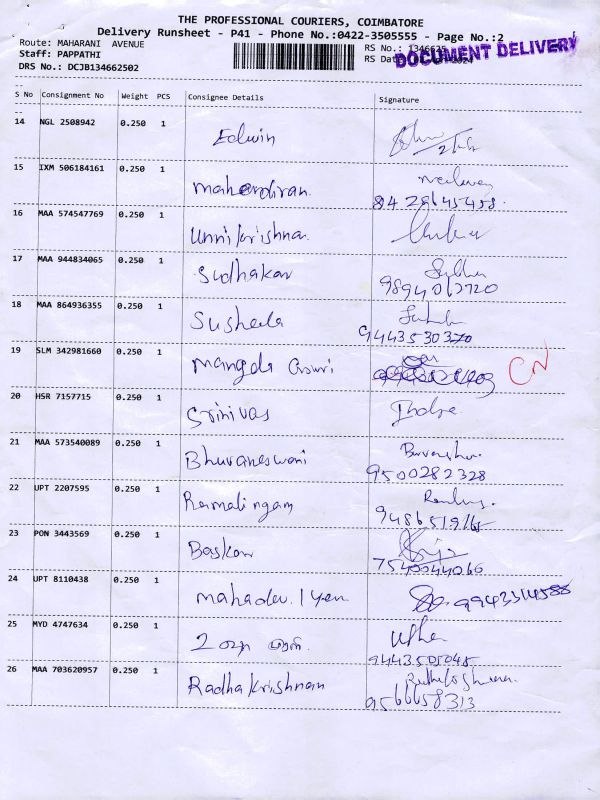 THE PROFESSIONAL COURIERS, COIMBATORE
Delivery Runsheet - P41 - Phone No.:0422-3505555 - Page No.:2
Route: MAHARANI AVENUE
Staff: PAPPATHI
DRS No.: DCJB134662502
RS No.:
RS Date
DOCUMENT DELIVERY
S No Consignment No Weight PCS Consignee Details Signature
14 NGL 2508942 0.250 1 Edwin
15 IXM 506184161 0.250 1 mahendiran.
8428645458.
16 MAA 574547769 0.250 1 Unni krishnan.
17 MAA 944834065 0.250 1 Sudhakar
18 MAA 864936355 0.250 1 Susheela
9443530370
19 SLM 342981660 0.250 1 Mangala Gowri
CN
20 HSR 7157715 0.250 1 Srinivas Indra
21 MAA 573540089 0.250 1 Bhuvaneswari
9500282328
22 UPT 2207595 0.250 1 Ramalingam
23 PON 3443569 0.250 1 Baskar
24 UPT 8110438 0.250 1 mahadev. Iyer
25 MYD 4747634 0.250 1 Usha
9443505045
26 MAA 703620957 0.250 1 Radha Krishnan
9566658313